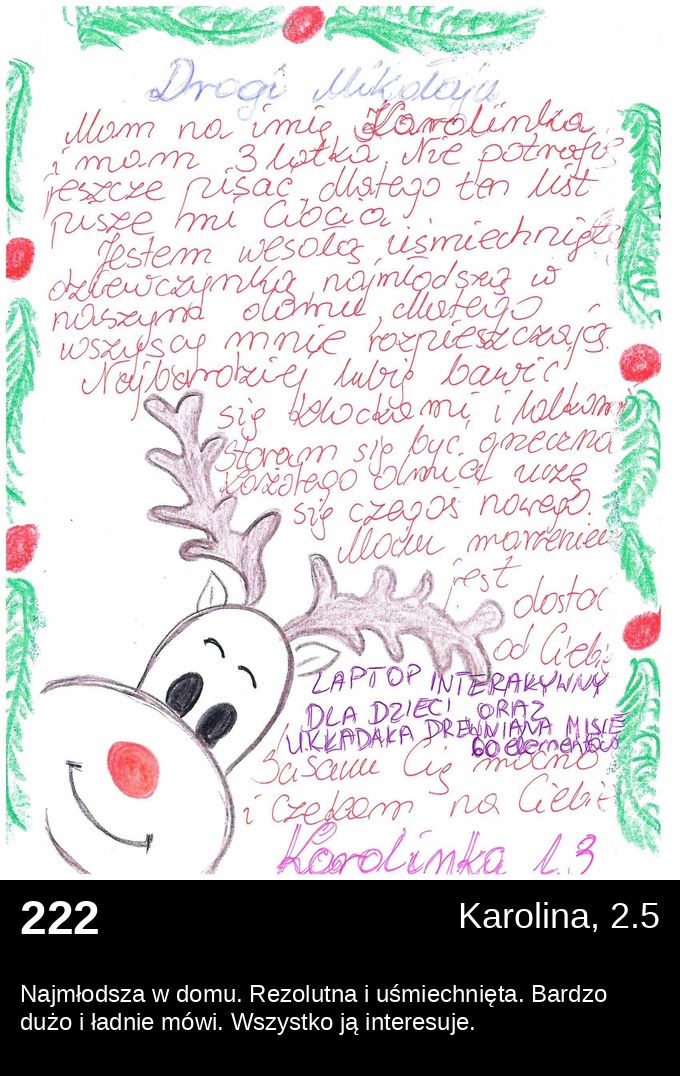 Drogi Mikołaju
Mam na imię Karolinka
i mam 3 latka. Nie potrafię
jeszcze pisać dlatego ten list
pisze mi Ciocia.
Jestem wesołą uśmiechniętą
dziewczynką najmłodszą w
naszym domu, dlatego
wszyscy mnie rozpieszczają.
Najbardziej lubię bawić
się klockami i lalkami
Staram się być grzeczna
każdego dnia uczę
się czegoś nowego.
Moim marzeniem
jest
dostać
od Ciebie
LAPTOP INTERAKYWNY
DLA DZIECI ORAZ
UKŁADAKA DREWNIANA MISIE
60 elementów
Cię mocno
i czekam na Ciebie
Karolinka l.3
222
Karolina, 2.5
Najmłodsza w domu. Rezolutna i uśmiechnięta. Bardzo
dużo i ładnie mówi. Wszystko ją interesuje.